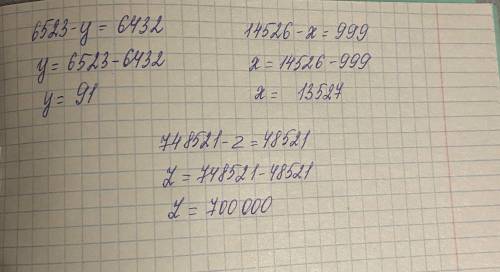 6523-y = 6432
y = 6523-6432
y = 91
14526-x = 999
x = 14526-999
x = 13527
748521-z = 48521
z = 748521-48521
z = 700000